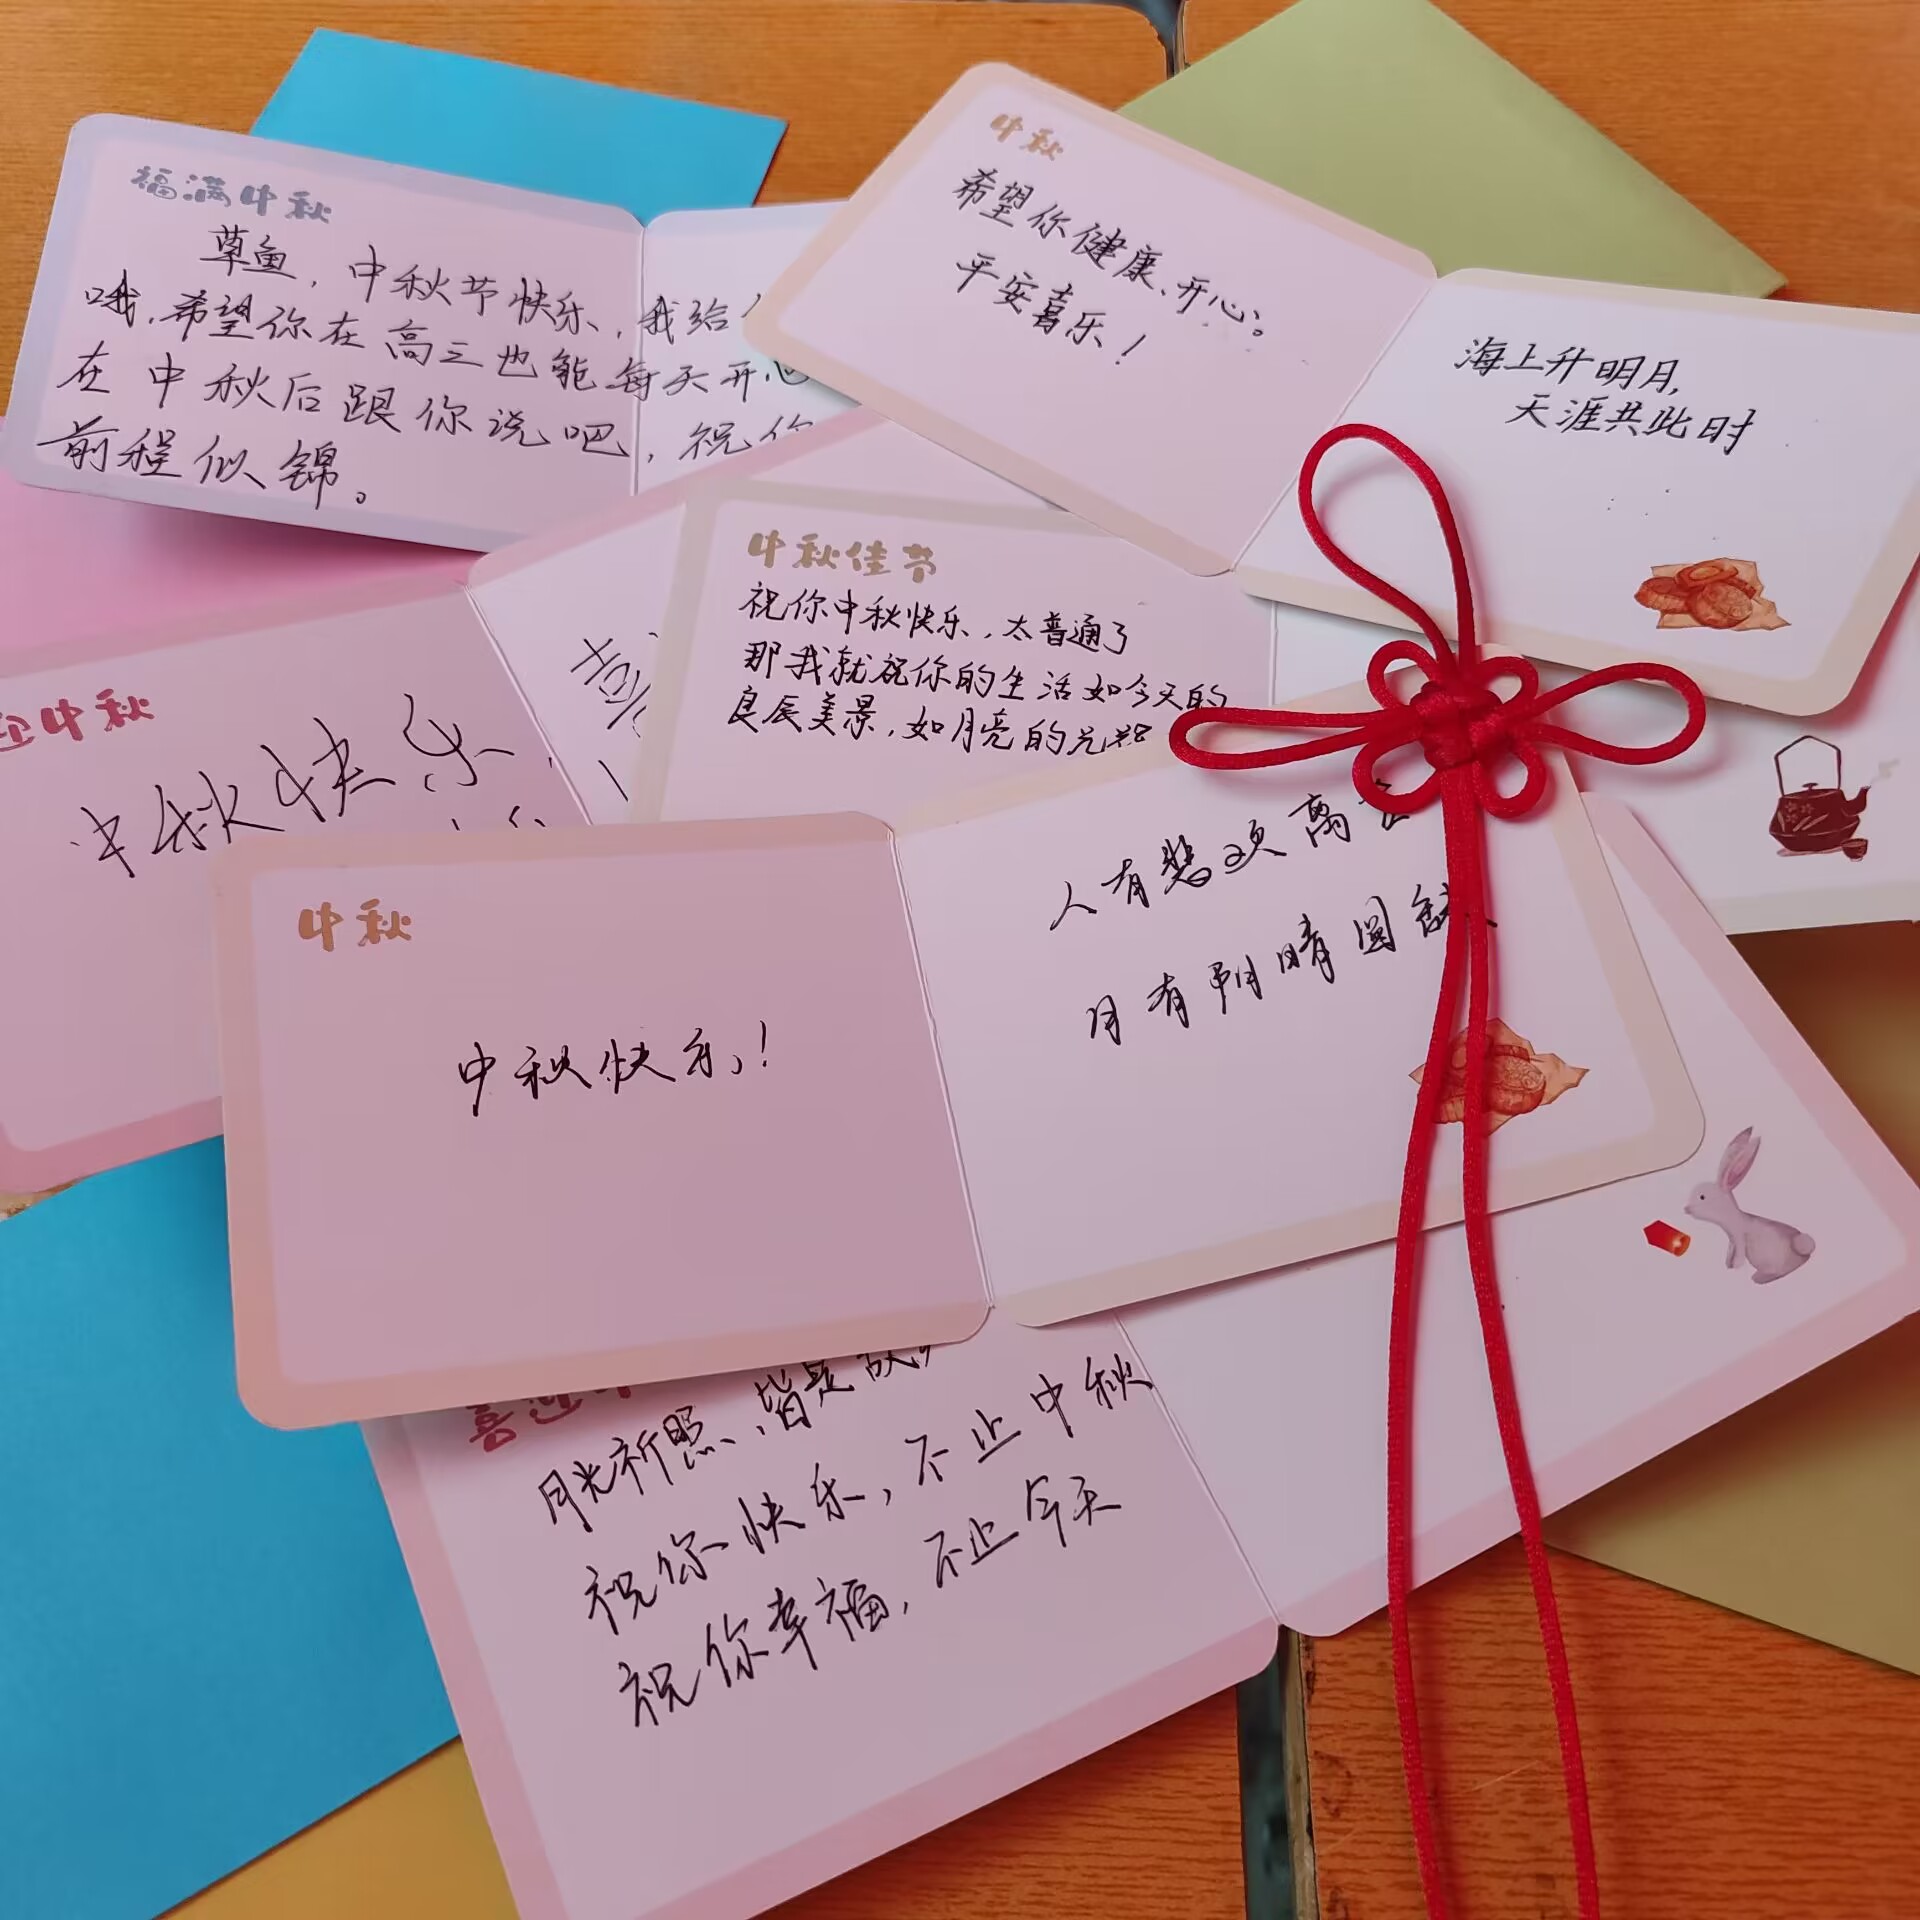 福满中秋
草鱼，中秋节快乐，我给
哦，希望你在高三也能每天开心
在中秋后跟你说吧，祝你
前程似锦。
中秋
希望你健康、开心。
平安喜乐！
海上升明月，
天涯共此时
中秋佳节
祝你中秋快乐，太普通了
那我就祝你的生活如今天的
良辰美景，如月亮的光
迎中秋
中秋快乐，
喜
中秋
中秋快乐！
人有悲欢离
月有阴晴圆缺
喜迎
月光所照、皆是故
祝你快乐，不止中秋
祝你幸福，不止今天